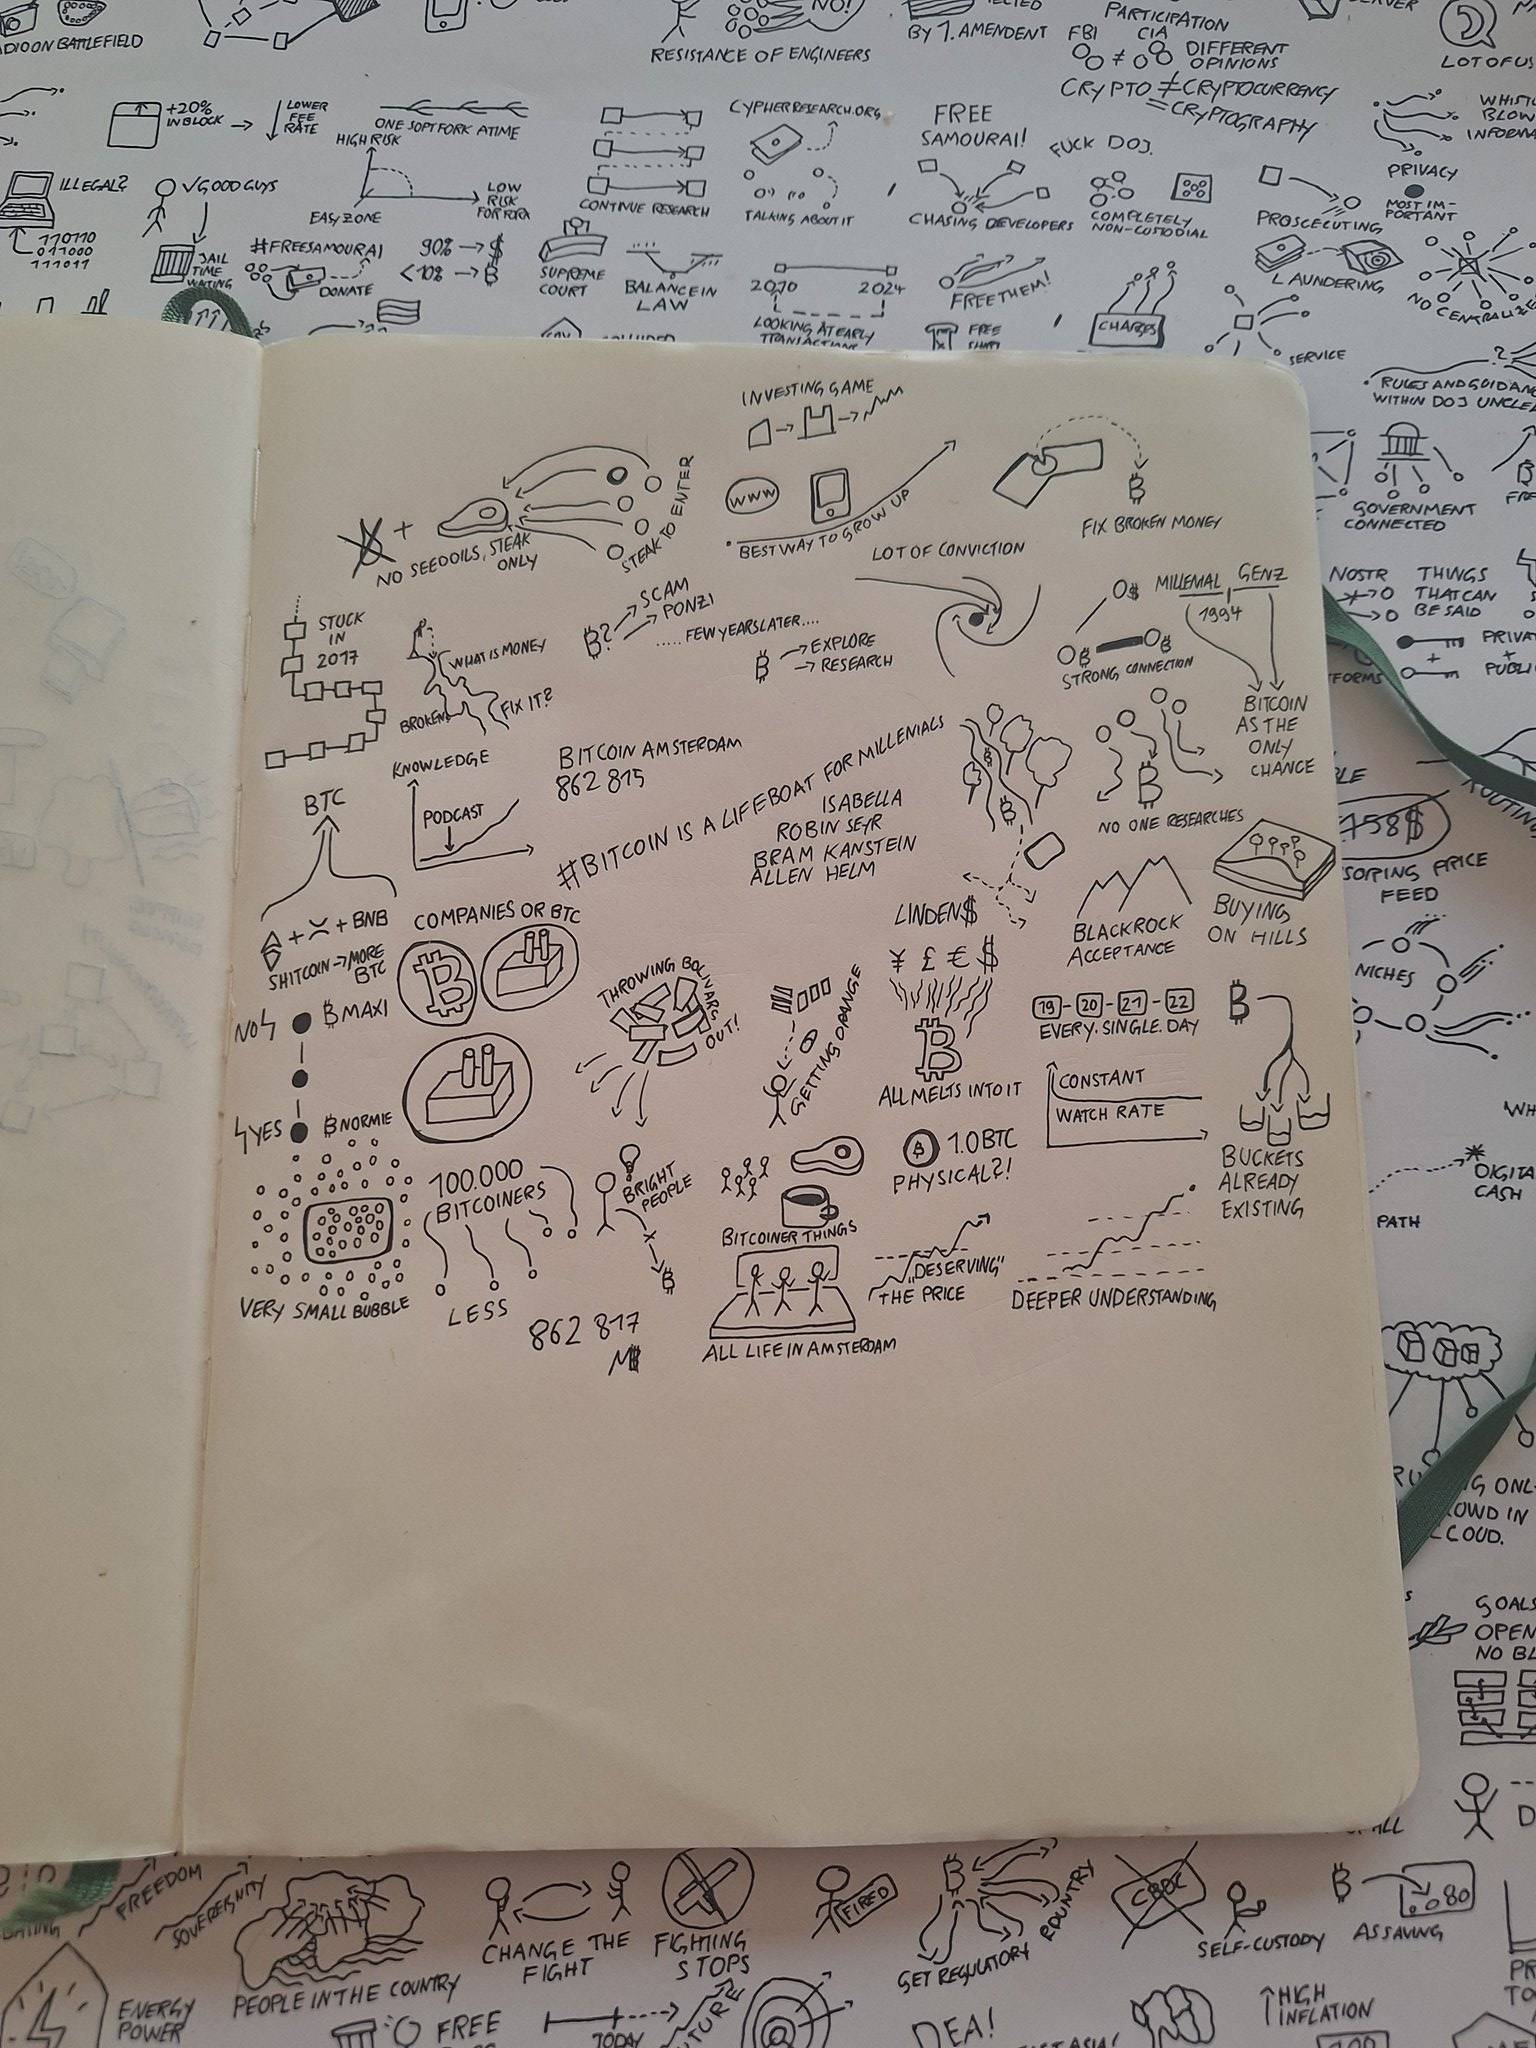 DIO ON BATTLEFIELD
NO!
RESISTANCE OF ENGINEERS
BY 1. AMENDENT
PARTICIPATION
FBI CIA
≠
DIFFERENT
OPINIONS
CRYPTO ≠ CRYPTOCURRENCY
= CRYPTOGRAPHY
SERVER
LOT OF US
+20%
IN BLOCK
LOWER
FEE
RATE
ONE SOFT FORK A TIME
HIGH RISK
LOW
RISK
FOR FORK
EASY ZONE
CONTINUE RESEARCH
CYPHERRESEARCH.ORG
TALKING ABOUT IT
FREE
SAMOURAI!
FUCK DOJ.
CHASING DEVELOPERS
COMPLETELY
NON-CUSTODIAL
PROSCECUTING
WHIST
BLOW
INFORMA
PRIVACY
MOST IM-
PORTANT
ILLEGAL?
110110
011000
111011
√GOOD GUYS
JAIL
TIME
WAITING
#FREESAMOURAI
DONATE
90% → $
<10% → ₿
SUPREME
COURT
BALANCE IN
LAW
2010 2024
LOOKING AT EARLY
TRANSACTIONS
FREE THEM!
FREE
CHARGES
LAUNDERING
NO CENTRALIZ
SERVICE
RULES AND GUIDANC
WITHIN DOJ UNCLE
GOVERNMENT
CONNECTED
NOSTR
THINGS
THAT CAN
BE SAID
PRIVAT
+
PUBLI
FORMS
INVESTING GAME
NO SEEDOILS, STEAK
ONLY
STEAK TO ENTER
WWW
BEST WAY TO GROW UP
₿
FIX BROKEN MONEY
LOT OF CONVICTION
STUCK
IN
2017
WHAT IS MONEY
BROKEN
FIX IT?
₿?
SCAM
PONZI
.....FEW YEARS LATER....
₿
→ EXPLORE
→ RESEARCH
STRONG CONNECTION
MILLENIAL GENZ
1994
BITCOIN
AS THE
ONLY
CHANCE
KNOWLEDGE
PODCAST
BITCOIN AMSTERDAM
862 815
#BITCOIN IS A LIFEBOAT FOR MILLENIALS
ISABELLA
ROBIN SEYR
BRAM KANSTEIN
ALLEN HELM
NO ONE RESEARCHES
BTC
+ + BNB
SHITCOIN → MORE
BTC
COMPANIES OR BTC
₿
LINDEN$
BLACKROCK
ACCEPTANCE
BUYING
ON HILLS
NO
₿ MAXI
YES
₿ NORMIE
THROWING BOLIVARS
OUT!
GETTING ORANGE
¥ £ € $
₿
ALL MELTS INTO IT
19 - 20 - 21 - 22
EVERY. SINGLE. DAY
CONSTANT
WATCH RATE
₿
BUCKETS
ALREADY
EXISTING
VERY SMALL BUBBLE
100.000
BITCOINERS
LESS
BRIGHT
PEOPLE
₿
BITCOINER THINGS
₿ 1.0 BTC
PHYSICAL?!
862 817
ALL LIFE IN AMSTERDAM
"DESERVING"
THE PRICE
DEEPER UNDERSTANDING
758$
PRICE
FEED
NICHES
DIGITA
CASH
PATH
G ONL
OWD IN
CLOUD.
GOALS
OPEN
NO BL
FREEDOM
SOVEREIGNITY
ENERGY
POWER
PEOPLE IN THE COUNTRY
CHANGE THE
FIGHT
FIGHTING
STOPS
FIRED
₿
GET REGULATORY
ROUNTRY
CBDC
SELF-CUSTODY
₿
80
AS SAVING
FREE
TODAY
DEA!
HIGH
INFLATION